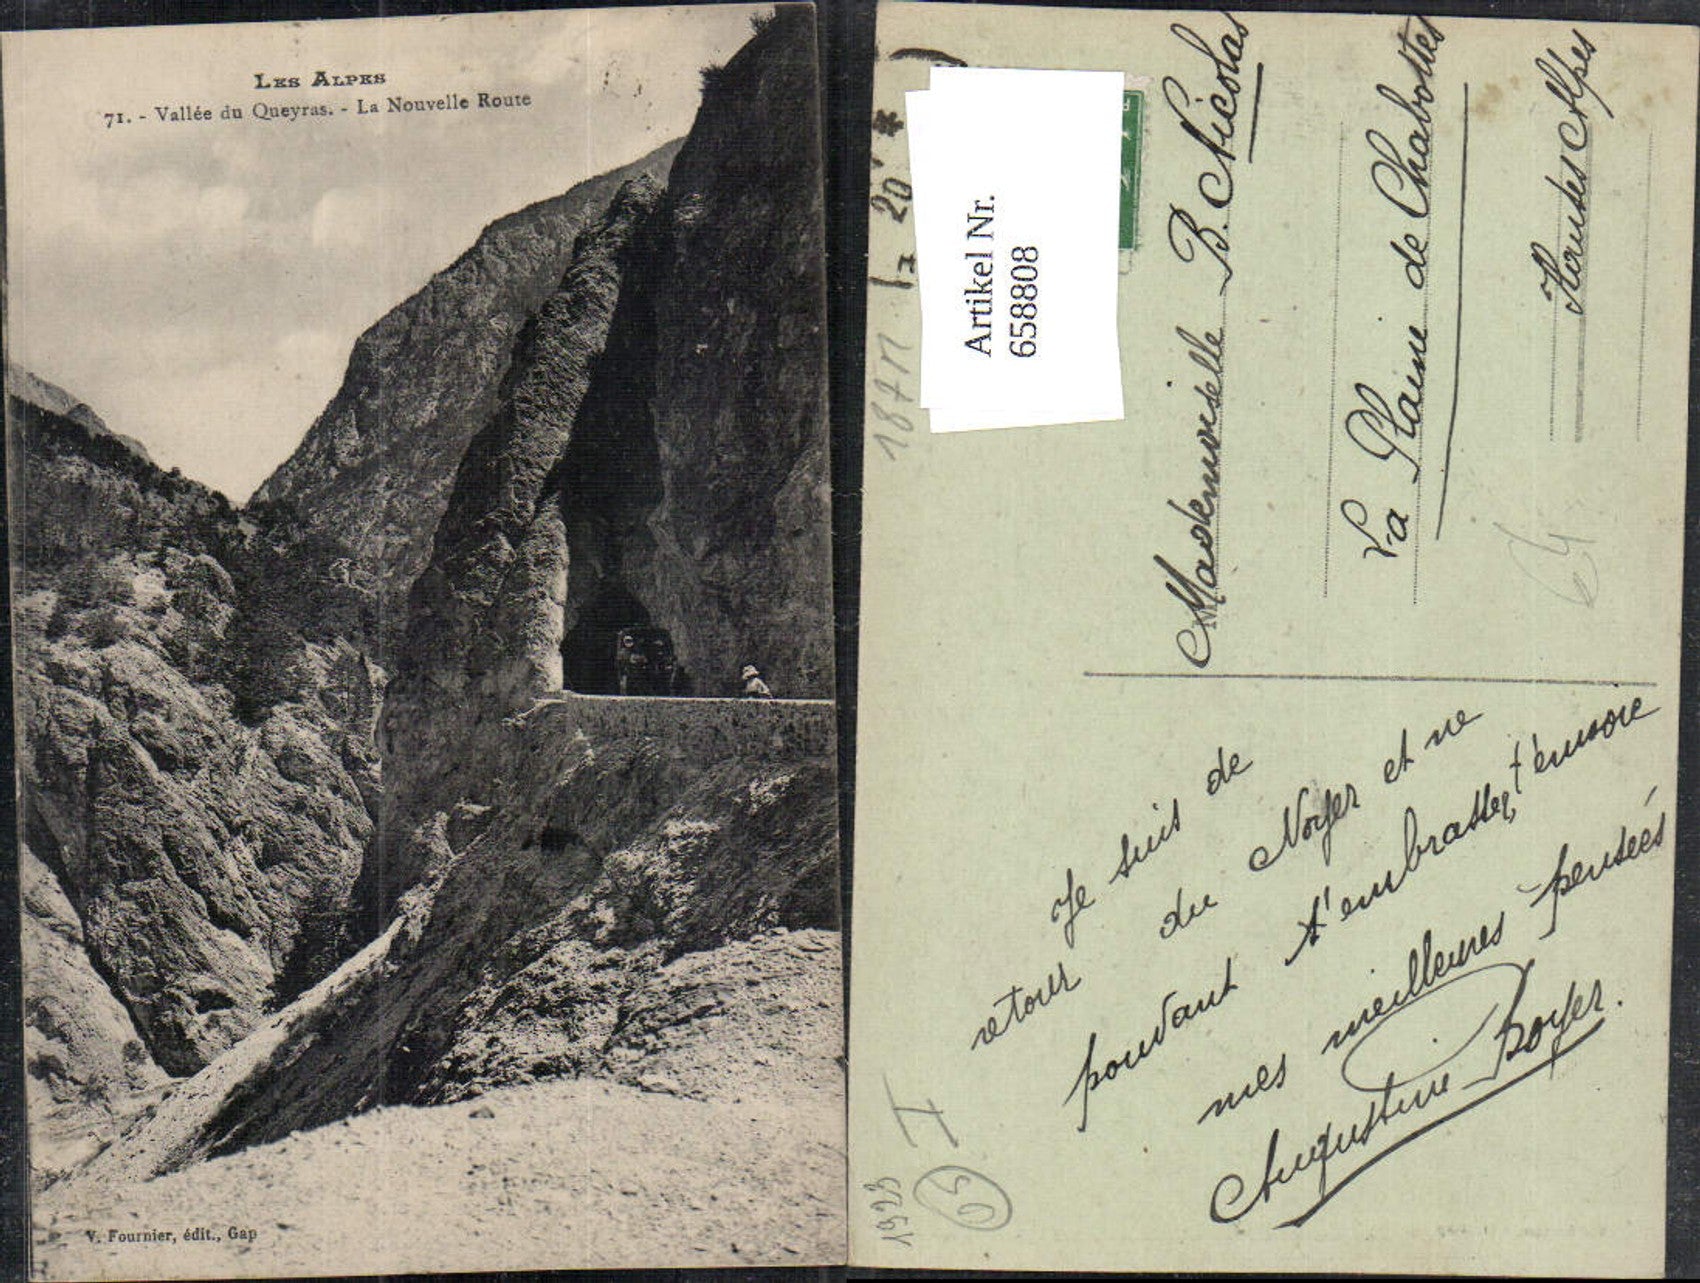 LES ALPES
71. - Vallée du Queyras. - La Nouvelle Route
V. Fournier, édit., Gap
Artikel Nr.
658808
20
187M
Mademoiselle B. Nicolas
La Plaine de Chabottes
Hautes Alpes
64
Je suis de
retour du Noyer et ne
pouvant t'embrasser, t'envoie
mes meilleures pensées
Augustine Royer.
I
1933